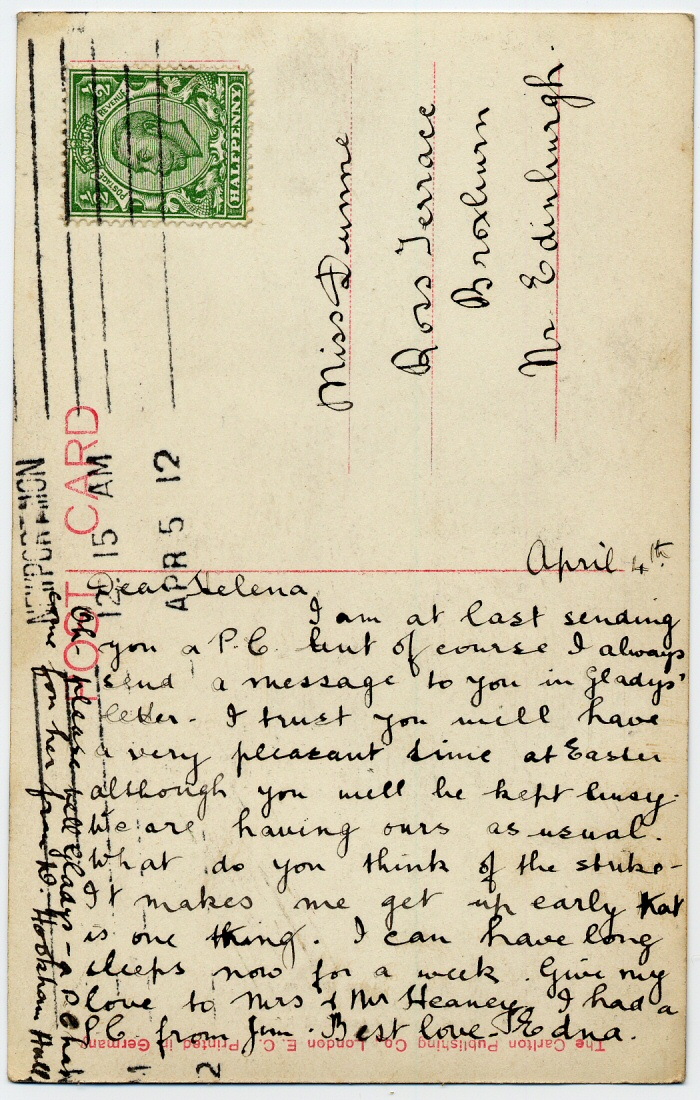 POSTAGE REVENUE
1/2 1/2
HALFPENNY
POST CARD
NEWPORT MON
12.15 AM
APR 5 12
Miss Dunne
Ross Terrace
Broxburn
Nr. Edinburgh.
April 4th
Dear Helena,
I am at last sending
you a P.C. but of course I always
send a message to you in Gladys'
letter. I trust you will have
a very pleasant time at Easter
although you will be kept busy.
We are having ours as usual.
What do you think of the strike-
It makes me get up early that
is one thing. I can have long
sleeps now for a week. Give my
love to Mrs & Mr Heaney. I had a
P.C. from Jim. Best love. Edna.
Oh- please tell Gladys - a P.C. has
come for her from W. Hookham Hall
The Carlton Publishing Co., London E. C. Printed in German